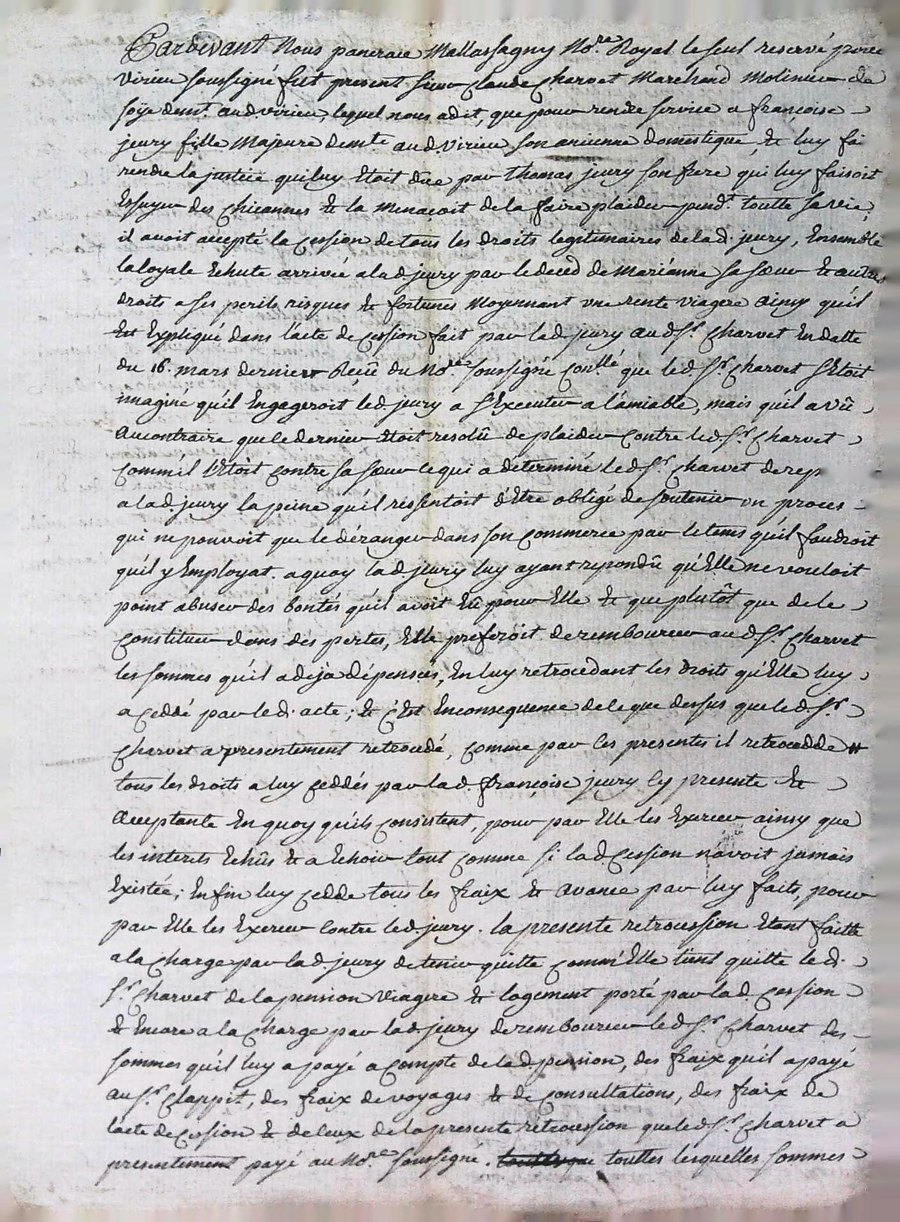 Pardevant Nous pancrace Mallassagny No.re Royal le seul reservé pour
virieu soussigné fut present sieur Claude Charvet Marchand Molinier de
soÿe demt. aud virieu lequel nous a dit, que pour rendre service a françoise
jeury fille Majeure demte aud. Virieu son anciene domestique, & luy fai
rendre la justice qui luy Etoit düe par thomas jeury son frere qui luy faisoit
Essuyer des chicannes & la menaçoit de la faire plaider pendt. toutte sa vie,
il avoit accepté la cession de tous les droits legitimaires de la d. jeury, Ensemble
la loyale Echute arrivée a la d jeury par le deced de Marianne sa sœur & autres
droits a ses perils risques & fortunes Moyennant une rente viagere ainsy qu'il
Est Expliqué dans l'acte de cession fait par la d jeury au d Sr. Charvet En datte
du 16. mars dernier Reçü du No.re soussigné Conllé que le d Sr Charvet s'Etoit
imaginé qu'il Engageroit le d jeury a s'Executer a l'amiable, mais qu'il a vû
au contraire que ce dernier Etoit resolû de plaider contre le d Sr. Charvet
comm'il l'Etoit contre sa sœur ce qui a determiné le d Sr. Charvet de rep
a la d jeury la peine qu'il ressentoit d'être obligé de soutenir un proces
qui ne pouvoit que le déranger dans son commerce par le tems qu'il faudroit
qu'il y Employat. a quoy la d. jeury luy ayant repondû qu'Elle ne vouloit
point abuser des bontés qu'il avoit Eû pour Elle & que plutôt que de le
constituer dans des pertes, Elle preferoit de rembourcer au d Sr. Charvet
les sommes qu'il a dija dépensées, En luy retrocedant les droits qu'Elle luy
a ceddé par le d. acte; & c'Est En consequence de le que dessus que le d. Sr.
Charvet a presentement retroceddé, comme par ces presentes il retrocedde
tous les droits a luy ceddés par la d. françoise jeury icy presente &
acceptante En quoy qu'ils consistent, pour par Elle les Exercer ainsy que
les interets Echûs & a Echoir tout comme si la d cession n'avoit jamais
Existée; Enfin luy cedde tous les fraix & avance par luy faits, pour
par Elle les Exercer contre le d jeury. la presente retrocession Etant faitte
a la charge par la d. jeury de tenir quitte comm'Elle tient quitte le d.
Sr. Charvet de la pension viagere & logement porté par la d. Cession
& Encore a la charge par la d. jeury de rembourcer le d Sr. Charvet des
sommes qu'il luy a payé a compte de la d. pension, des fraix qu'il a payé
au Sr. Clappit, des fraix de voyages & de consultations, des fraix de
l'acte de cession & de ceux de la presente retrocession que le d Sr. Charvet a
presentement payé au No.re soussigné. touttes lesquelles sommes